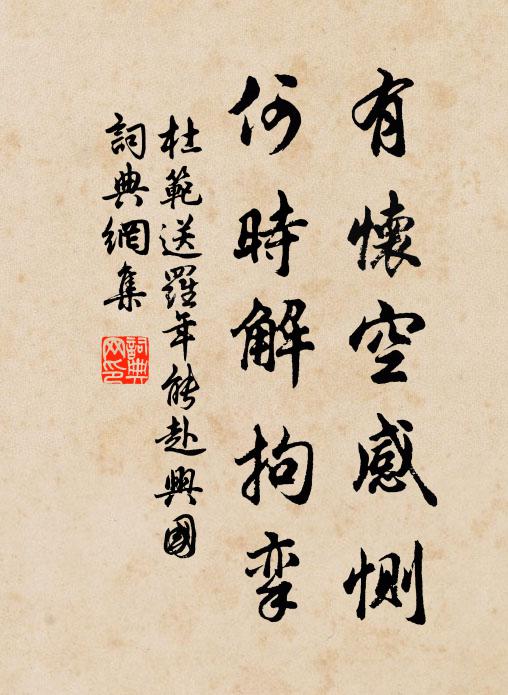 有懷空感惻
何時解拘孿
杜範送羅年能赴興國
詞典網集
詞典网印